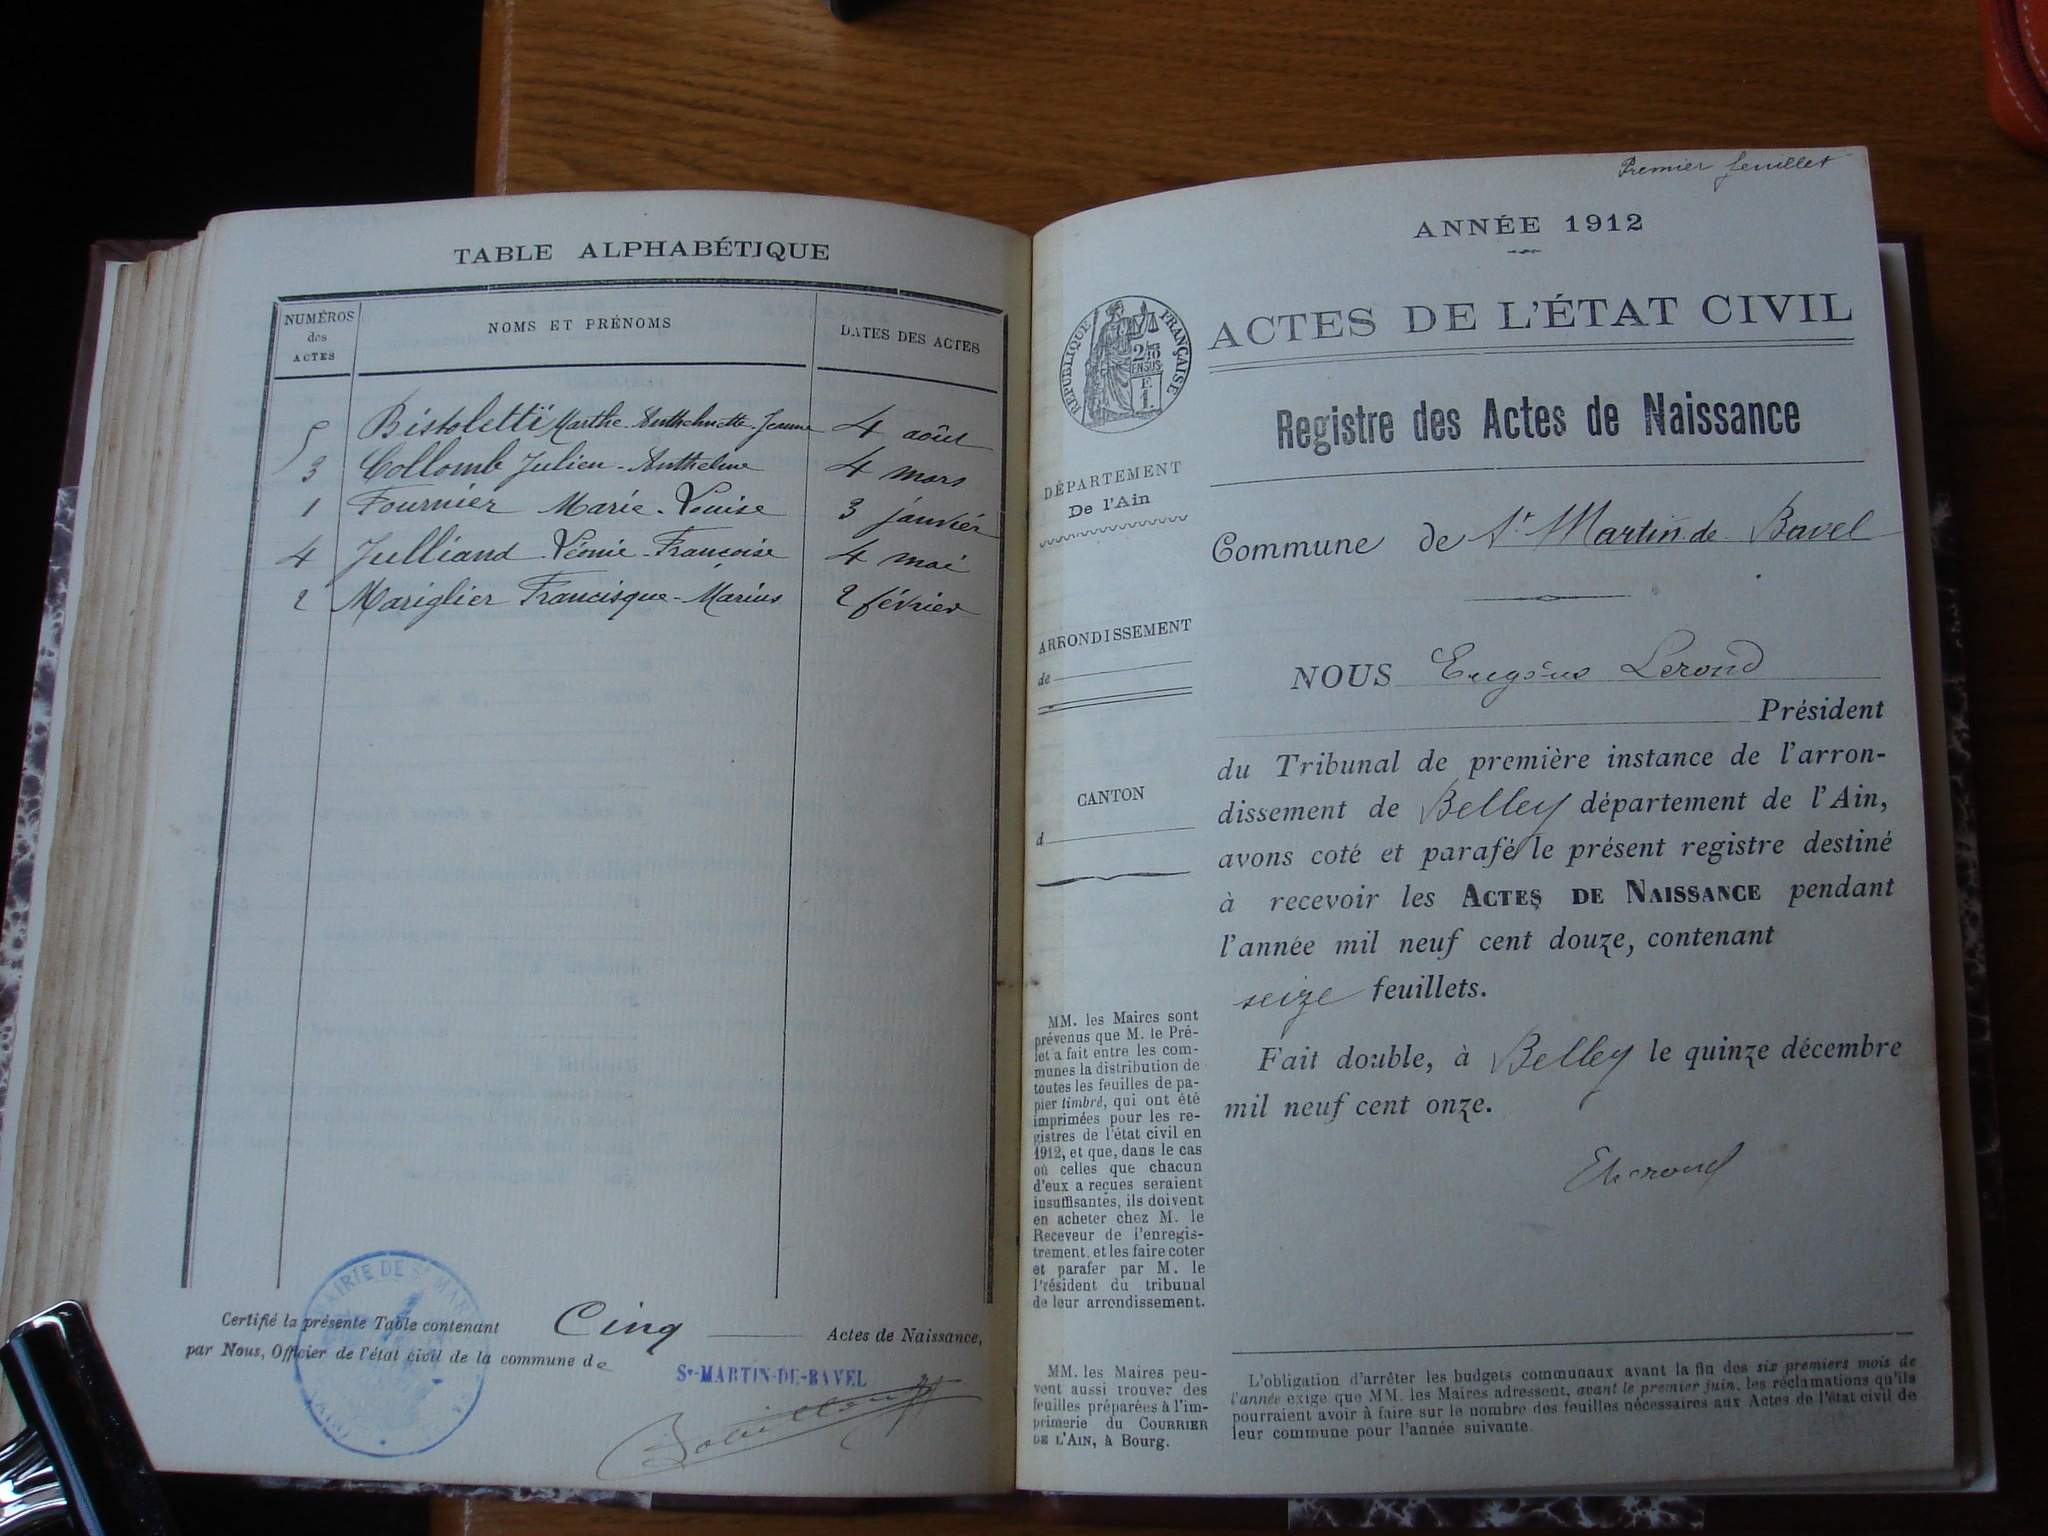 TABLE ALPHABÉTIQUE
NUMÉROS des ACTES NOMS ET PRÉNOMS DATES DES ACTES
5 Bistoletti Marthe-Anthelmette-Jeanne 4 août
3 Collomb Julien-Anthelme 4 mars
1 Fournier Marie-Louise 3 janvier
4 Julliand Léonie-Françoise 4 mai
2 Mariglier Francisque-Marius 2 février
Certifié la présente Table contenant Cinq Actes de Naissance,
par Nous, Officier de l'état civil de la commune de
St-MARTIN-DE-BAVEL
MAIRIE DE St MAR
(AIN)
Premier feuillet
ANNÉE 1912
RÉPUBLIQUE FRANÇAISE
ACTES DE L'ÉTAT CIVIL
Registre des Actes de Naissance
DÉPARTEMENT
De l'Ain
Commune de St Martin-de-Bavel
ARRONDISSEMENT
de
NOUS Eugène Lerond
Président
du Tribunal de première instance de l'arron-
dissement de Belley département de l'Ain,
avons coté et parafé le présent registre destiné
à recevoir les ACTES DE NAISSANCE pendant
l'année mil neuf cent douze, contenant
seize feuillets.
Fait double, à Belley le quinze décembre
mil neuf cent onze.
ELerond
CANTON
d
MM. les Maires sont
prévenus que M. le Pré-
fet a fait entre les com-
munes la distribution de
toutes les feuilles de pa-
pier timbré, qui ont été
imprimées pour les re-
gistres de l'état civil en
1912, et que, dans le cas
où celles que chacun
d'eux a reçues seraient
insuffisantes, ils doivent
en acheter chez M. le
Receveur de l'enregis-
trement, et les faire coter
et parafer par M. le
Président du tribunal
de leur arrondissement.
MM. les Maires peu-
vent aussi trouver des
feuilles préparées à l'im-
primerie du COURRIER
DE L'AIN, à Bourg.
L'obligation d'arrêter les budgets communaux avant la fin des six premiers mois de
l'année exige que MM. les Maires adressent, avant le premier juin, les réclamations qu'ils
pourraient avoir à faire sur le nombre des feuilles nécessaires aux Actes de l'état civil de
leur commune pour l'année suivante.